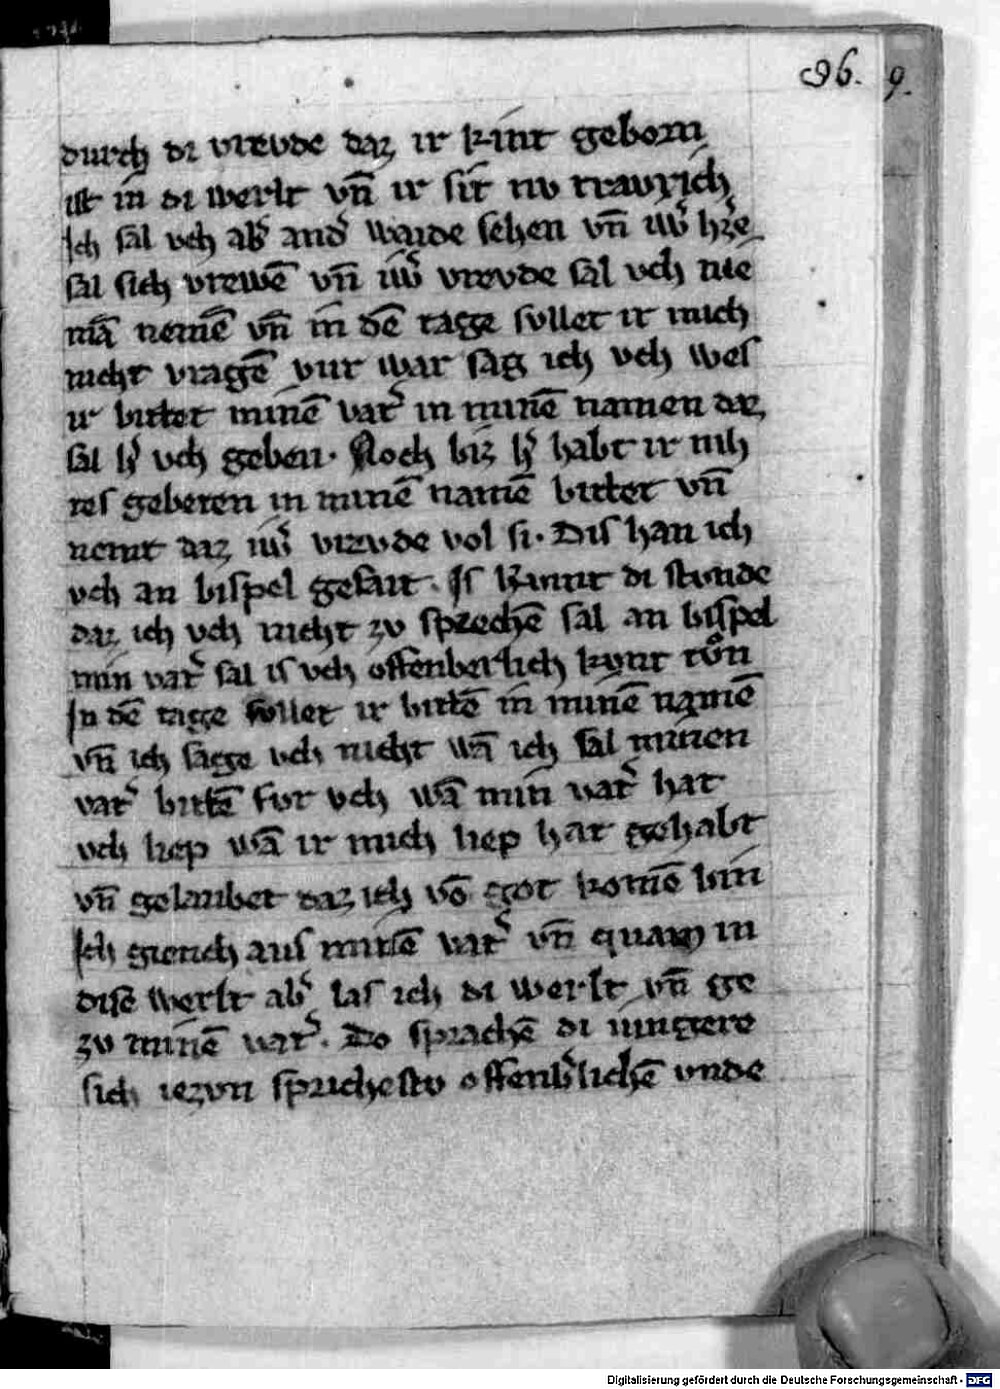 96. 9.
durch di vrevde daz ir kint geborn
ist in di werlt vn̄ ir sit nv travrich
Ich sal vch ab̓ and̓ warde sehen vn̄ iw̓ h̓ze
sal sich vrewē vn̄ iw̓ vrevde sal vch nie
mā nemē vn̄ in dē tage sullet ir mich
nicht vragē vur war sag ich vch wes
ir bittet minē vat̓ in minē namen daz
sal h̓ vch geben. Noch biz h̓ habt ir nih
tes geberen in minē namē bittet vn̄
nemt daz iw̓ vrevde vol si. Dis han ich
vch an bispel gesait. Is kumt di stunde
daz ich vch nicht zv sprechē sal an bispel
min vat̓ sal is vch offenberlich kunt tůn
In dē tage sullet ir bittē in minē namē
vn̄ ich sage vch nicht wā ich sal minen
vat̓ bittē fur vch wā min vat̓ hat
vch liep wā ir mich liep hat gehabt
vn̄ gelaubet daz ich vō got komē bin
Ich giench aus minē vat̓ vn̄ quam in
dise werlt ab̓ las ich di werlt vn̄ ge
zv minē vat̓. Do sprachē di iungere
sich iezvn sprichestv offenb̓lichē vnde
Digitalisierung gefördert durch die Deutsche Forschungsgemeinschaft - DFG